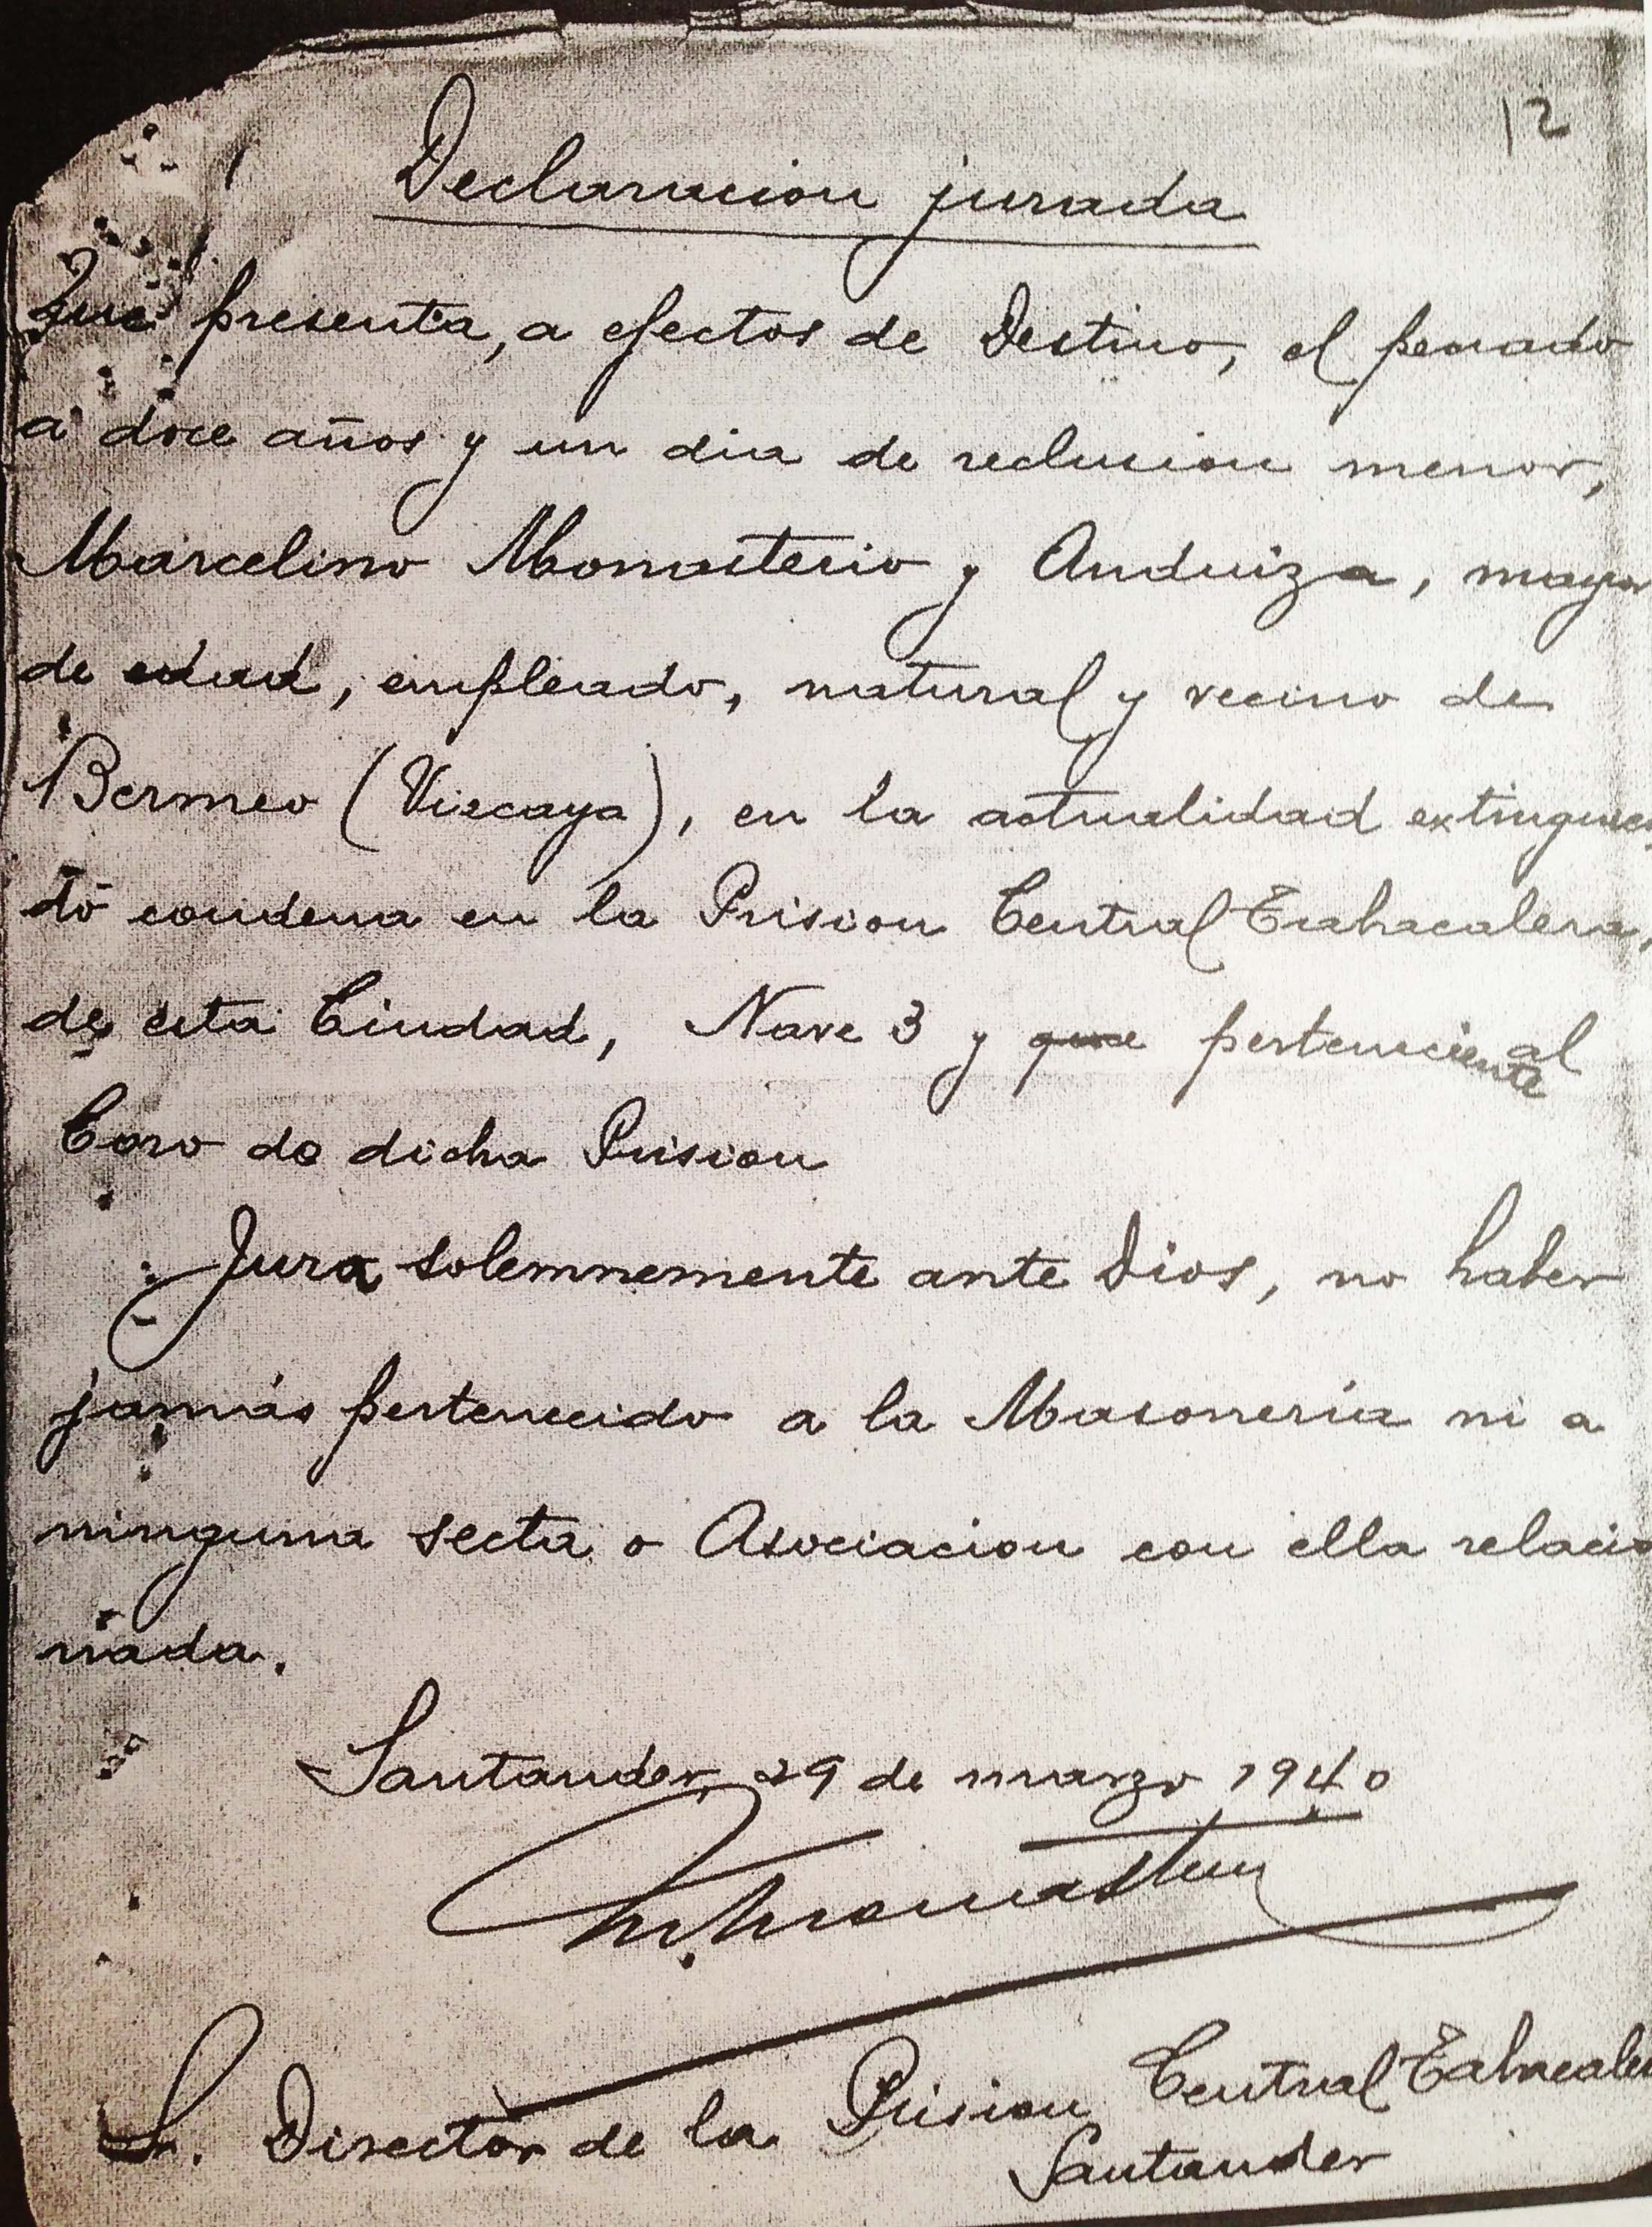 12
Declaracion jurada
Que presenta, a efectos de Destino, el penado
a doce años y un dia de reclusion menor,
Marcelino Monasterio y Anduiza, mayor
de edad, empleado, natural y vecino de
Bermeo (Vizcaya), en la actualidad extinguien
do condena en la Prision Central Trabacalera,
de esta Ciudad, Nave 3 y que perteneciente al
Coro de dicha Prision
Jura solemnemente ante Dios, no haber
jamás pertenecido a la Masonería ni a
ninguna secta o Asociacion con ella relacio
nada.
Santander, 29 de marzo 1940
M. Monasterio
S. Director de la Prision Central Tabacalera
Santander